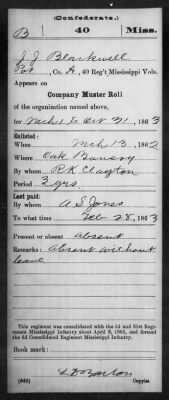 (Confederate.)
B 40 Miss.
J J Blackwell
Pvt, Co. A, 40 Reg't Mississippi Vols.
Appears on
Company Muster Roll
of the organization named above,
for Mch 1 to Oct 31, 1863
Enlisted:
When Mch 13, 1862
Where Oak Bowery
By whom R K Clayton
Period 3 yrs.
Last paid:
By whom A S Jones
To what time Feb 28, 1863
Present or absent absent
Remarks: Absent without
leave
This regiment was consolidated with the 3d and 31st Regi-
ments Mississippi Infantry about April 9, 1865, and formed
the 3d Consolidated Regiment Mississippi Infantry.
Book mark:
(642)
Copyist.